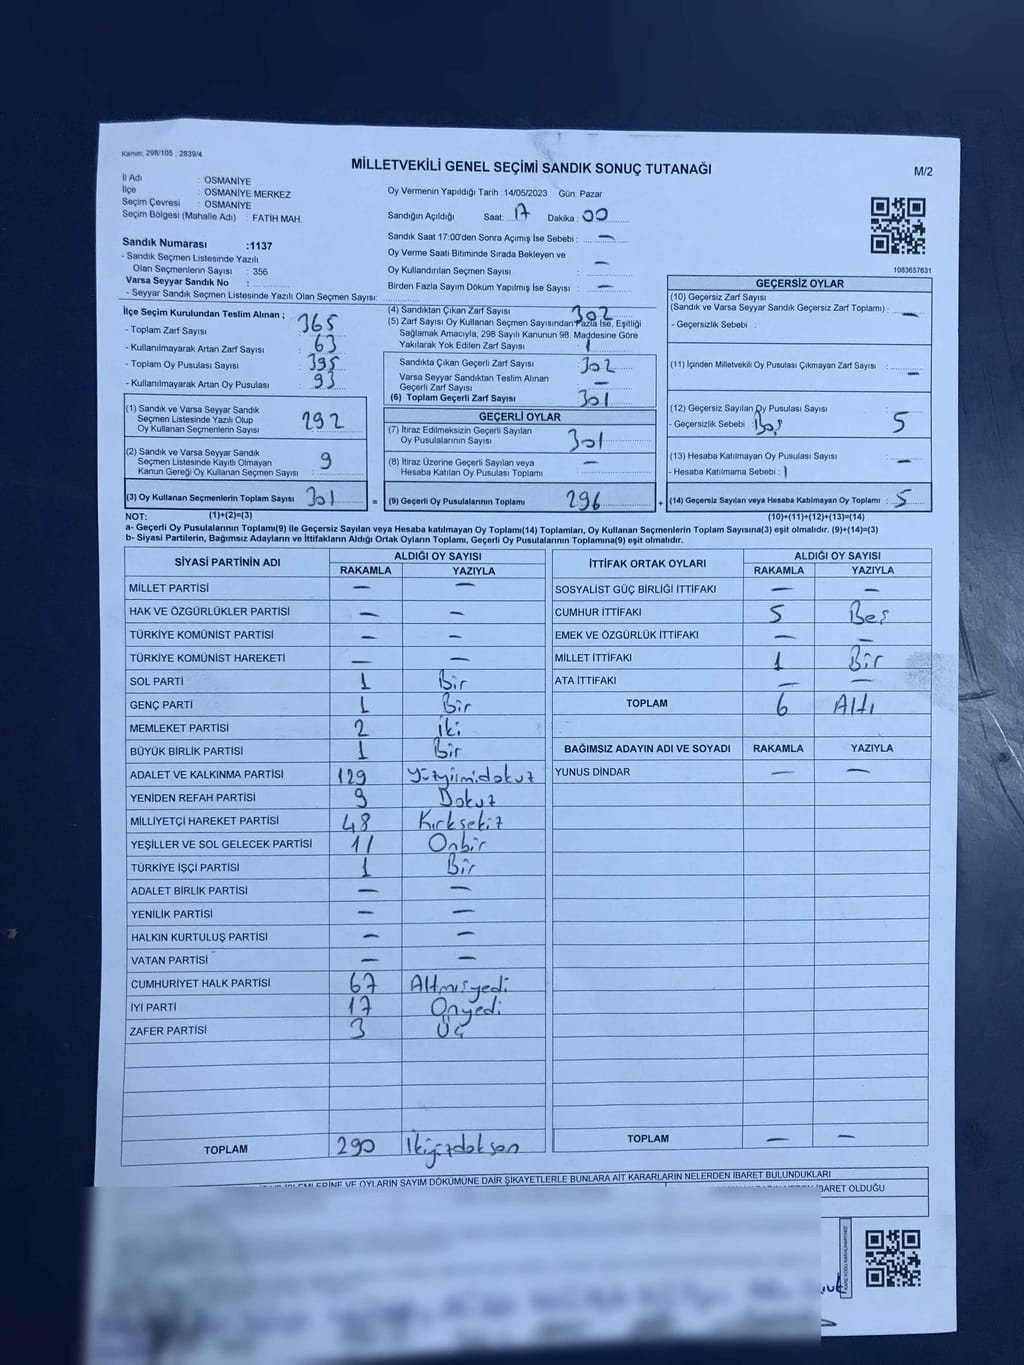 Kanun: 298/105 , 2839/4
MİLLETVEKİLİ GENEL SEÇİMİ SANDIK SONUÇ TUTANAĞI
M/2
İl Adı : OSMANİYE
İlçe : OSMANİYE MERKEZ
Seçim Çevresi : OSMANİYE
Seçim Bölgesi (Mahalle Adı) : FATİH MAH.
Oy Vermenin Yapıldığı Tarih :14/05/2023 Gün: Pazar
Sandığın Açıldığı Saat: 17 Dakika : 00
Sandık Saat 17:00'den Sonra Açımış İse Sebebi : —
Oy Verme Saati Bitiminde Sırada Bekleyen ve
Oy Kullandırılan Seçmen Sayısı : —
Birden Fazla Sayım Döküm Yapılmış İse Sayısı : —
1083657631
Sandık Numarası :1137
- Sandık Seçmen Listesinde Yazılı
Olan Seçmenlerin Sayısı : 356
Varsa Seyyar Sandık No :
- Seyyar Sandık Seçmen Listesinde Yazılı Olan Seçmen Sayısı:
İlçe Seçim Kurulundan Teslim Alınan ;
- Toplam Zarf Sayısı : 365
- Kullanılmayarak Artan Zarf Sayısı : 63
- Toplam Oy Pusulası Sayısı : 395
- Kullanılmayarak Artan Oy Pusulası : 93
(1) Sandık ve Varsa Seyyar Sandık
Seçmen Listesinde Yazılı Olup
Oy Kullanan Seçmenlerin Sayısı : 292
(2) Sandık ve Varsa Seyyar Sandık
Seçmen Listesinde Kayıtlı Olmayan
Kanun Gereği Oy Kullanan Seçmen Sayısı : 9
(3) Oy Kullanan Seçmenlerin Toplam Sayısı : 301
(4) Sandıktan Çıkan Zarf Sayısı : 302
(5) Zarf Sayısı Oy Kullanan Seçmen Sayısından Fazla İse, Eşitliği
Sağlamak Amacıyla, 298 Sayılı Kanunun 98. Maddesine Göre
Yakılarak Yok Edilen Zarf Sayısı : 1
Sandıkta Çıkan Geçerli Zarf Sayısı : 302
Varsa Seyyar Sandıktan Teslim Alınan
Geçerli Zarf Sayısı : —
(6) Toplam Geçerli Zarf Sayısı : 301
GEÇERLİ OYLAR
(7) İtiraz Edilmeksizin Geçerli Sayılan
Oy Pusulalarının Sayısı : 301
(8) İtiraz Üzerine Geçerli Sayılan veya
Hesaba Katılan Oy Pusulası Toplamı : —
= (9) Geçerli Oy Pusulalarının Toplamı : 296
GEÇERSİZ OYLAR
(10) Geçersiz Zarf Sayısı
(Sandık ve Varsa Seyyar Sandık Geçersiz Zarf Toplamı) : —
- Geçersizlik Sebebi :
(11) İçinden Milletvekili Oy Pusulası Çıkmayan Zarf Sayısı : —
(12) Geçersiz Sayılan Oy Pusulası Sayısı : 5
- Geçersizlik Sebebi : Boş
(13) Hesaba Katılmayan Oy Pusulası Sayısı : —
- Hesaba Katılmama Sebebi :
+ (14) Geçersiz Sayılan veya Hesaba Katılmayan Oy Toplamı : 5
NOT: (1)+(2)=(3) (10)+(11)+(12)+(13)=(14)
a- Geçerli Oy Pusulalarının Toplamı(9) ile Geçersiz Sayılan veya Hesaba katılmayan Oy Toplamı(14) Toplamları, Oy Kullanan Seçmenlerin Toplam Sayısına(3) eşit olmalıdır. (9)+(14)=(3)
b- Siyasi Partilerin, Bağımsız Adayların ve İttifakların Aldığı Ortak Oyların Toplamı, Geçerli Oy Pusulalarının Toplamına(9) eşit olmalıdır.
SİYASİ PARTİNİN ADI ALDIĞI OY SAYISI
RAKAMLA YAZIYLA
MİLLET PARTİSİ — —
HAK VE ÖZGÜRLÜKLER PARTİSİ — —
TÜRKİYE KOMÜNİST PARTİSİ — —
TÜRKİYE KOMÜNİST HAREKETİ — —
SOL PARTİ 1 Bir
GENÇ PARTİ 1 Bir
MEMLEKET PARTİSİ 2 iki
BÜYÜK BİRLİK PARTİSİ 1 Bir
ADALET VE KALKINMA PARTİSİ 129 Yüzyirmidokuz
YENİDEN REFAH PARTİSİ 9 Dokuz
MİLLİYETÇİ HAREKET PARTİSİ 48 Kırksekiz
YEŞİLLER VE SOL GELECEK PARTİSİ 11 Onbir
TÜRKİYE İŞÇİ PARTİSİ 1 Bir
ADALET BİRLİK PARTİSİ — —
YENİLİK PARTİSİ — —
HALKIN KURTULUŞ PARTİSİ — —
VATAN PARTİSİ — —
CUMHURİYET HALK PARTİSİ 67 Altmışyedi
İYİ PARTİ 17 Onyedi
ZAFER PARTİSİ 3 Üç
TOPLAM 290 İkiyüzdoksan
İTTİFAK ORTAK OYLARI ALDIĞI OY SAYISI
RAKAMLA YAZIYLA
SOSYALİST GÜÇ BİRLİĞİ İTTİFAKI — —
CUMHUR İTTİFAKI 5 Beş
EMEK VE ÖZGÜRLÜK İTTİFAKI — —
MİLLET İTTİFAKI 1 Bir
ATA İTTİFAKI — —
TOPLAM 6 Altı
BAĞIMSIZ ADAYIN ADI VE SOYADI RAKAMLA YAZIYLA
YUNUS DİNDAR — —
TOPLAM — —
İŞLEMLERİNE VE OYLARIN SAYIM DÖKÜMÜNE DAİR ŞİKAYETLERLE BUNLARA AİT KARARLARIN NELERDEN İBARET BULUNDUKLARI
İBARET OLDUĞU